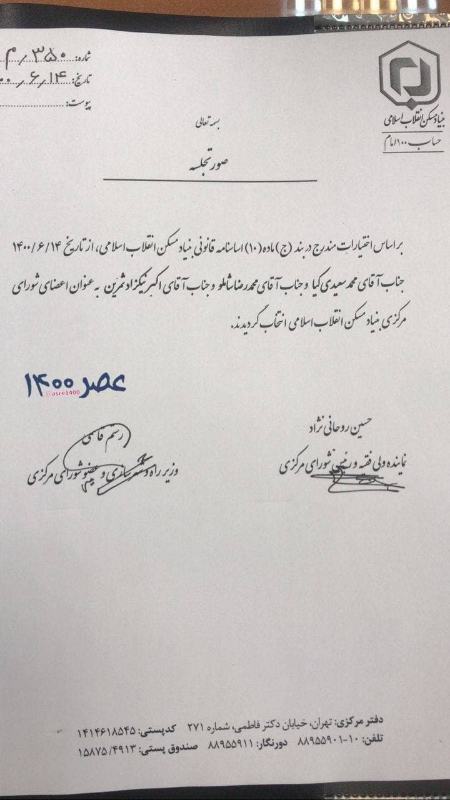 شماره: ۳۵۰/م
تاریخ: ۱۴/۶/۰۰
پیوست:
بنیاد مسکن انقلاب اسلامی
حساب ۱۰۰ امام
بسمه تعالی
صورتجلسه
بر اساس اختیارات مندرج در بند (ج) ماده (۱۰) اساسنامه قانونی بنیاد مسکن انقلاب اسلامی، از تاریخ ۱۴۰۰/۶/۱۴
جناب آقای محمد سعیدی کیا و جناب آقای محمدرضا شاملو و جناب آقای اکبر نیکزاد ثمرین به عنوان اعضای شورای
مرکزی بنیاد مسکن انقلاب اسلامی انتخاب گردیدند.
عصر ۱۴۰۰
@asre1400
حسین روحانی نژاد
نماینده ولی فقیه و رئیس شورای مرکزی
رستم قاسمی
وزیر راه و شهرسازی و عضو شورای مرکزی
دفتر مرکزی: تهران، خیابان دکتر فاطمی، شماره ۲۷۱ کدپستی: ۱۴۱۴۶۱۸۵۴۵
تلفن: ۱۰-۸۸۹۵۵۹۰۱ دورنگار: ۸۸۹۵۵۹۱۱ صندوق پستی: ۱۵۸۷۵/۴۹۱۳